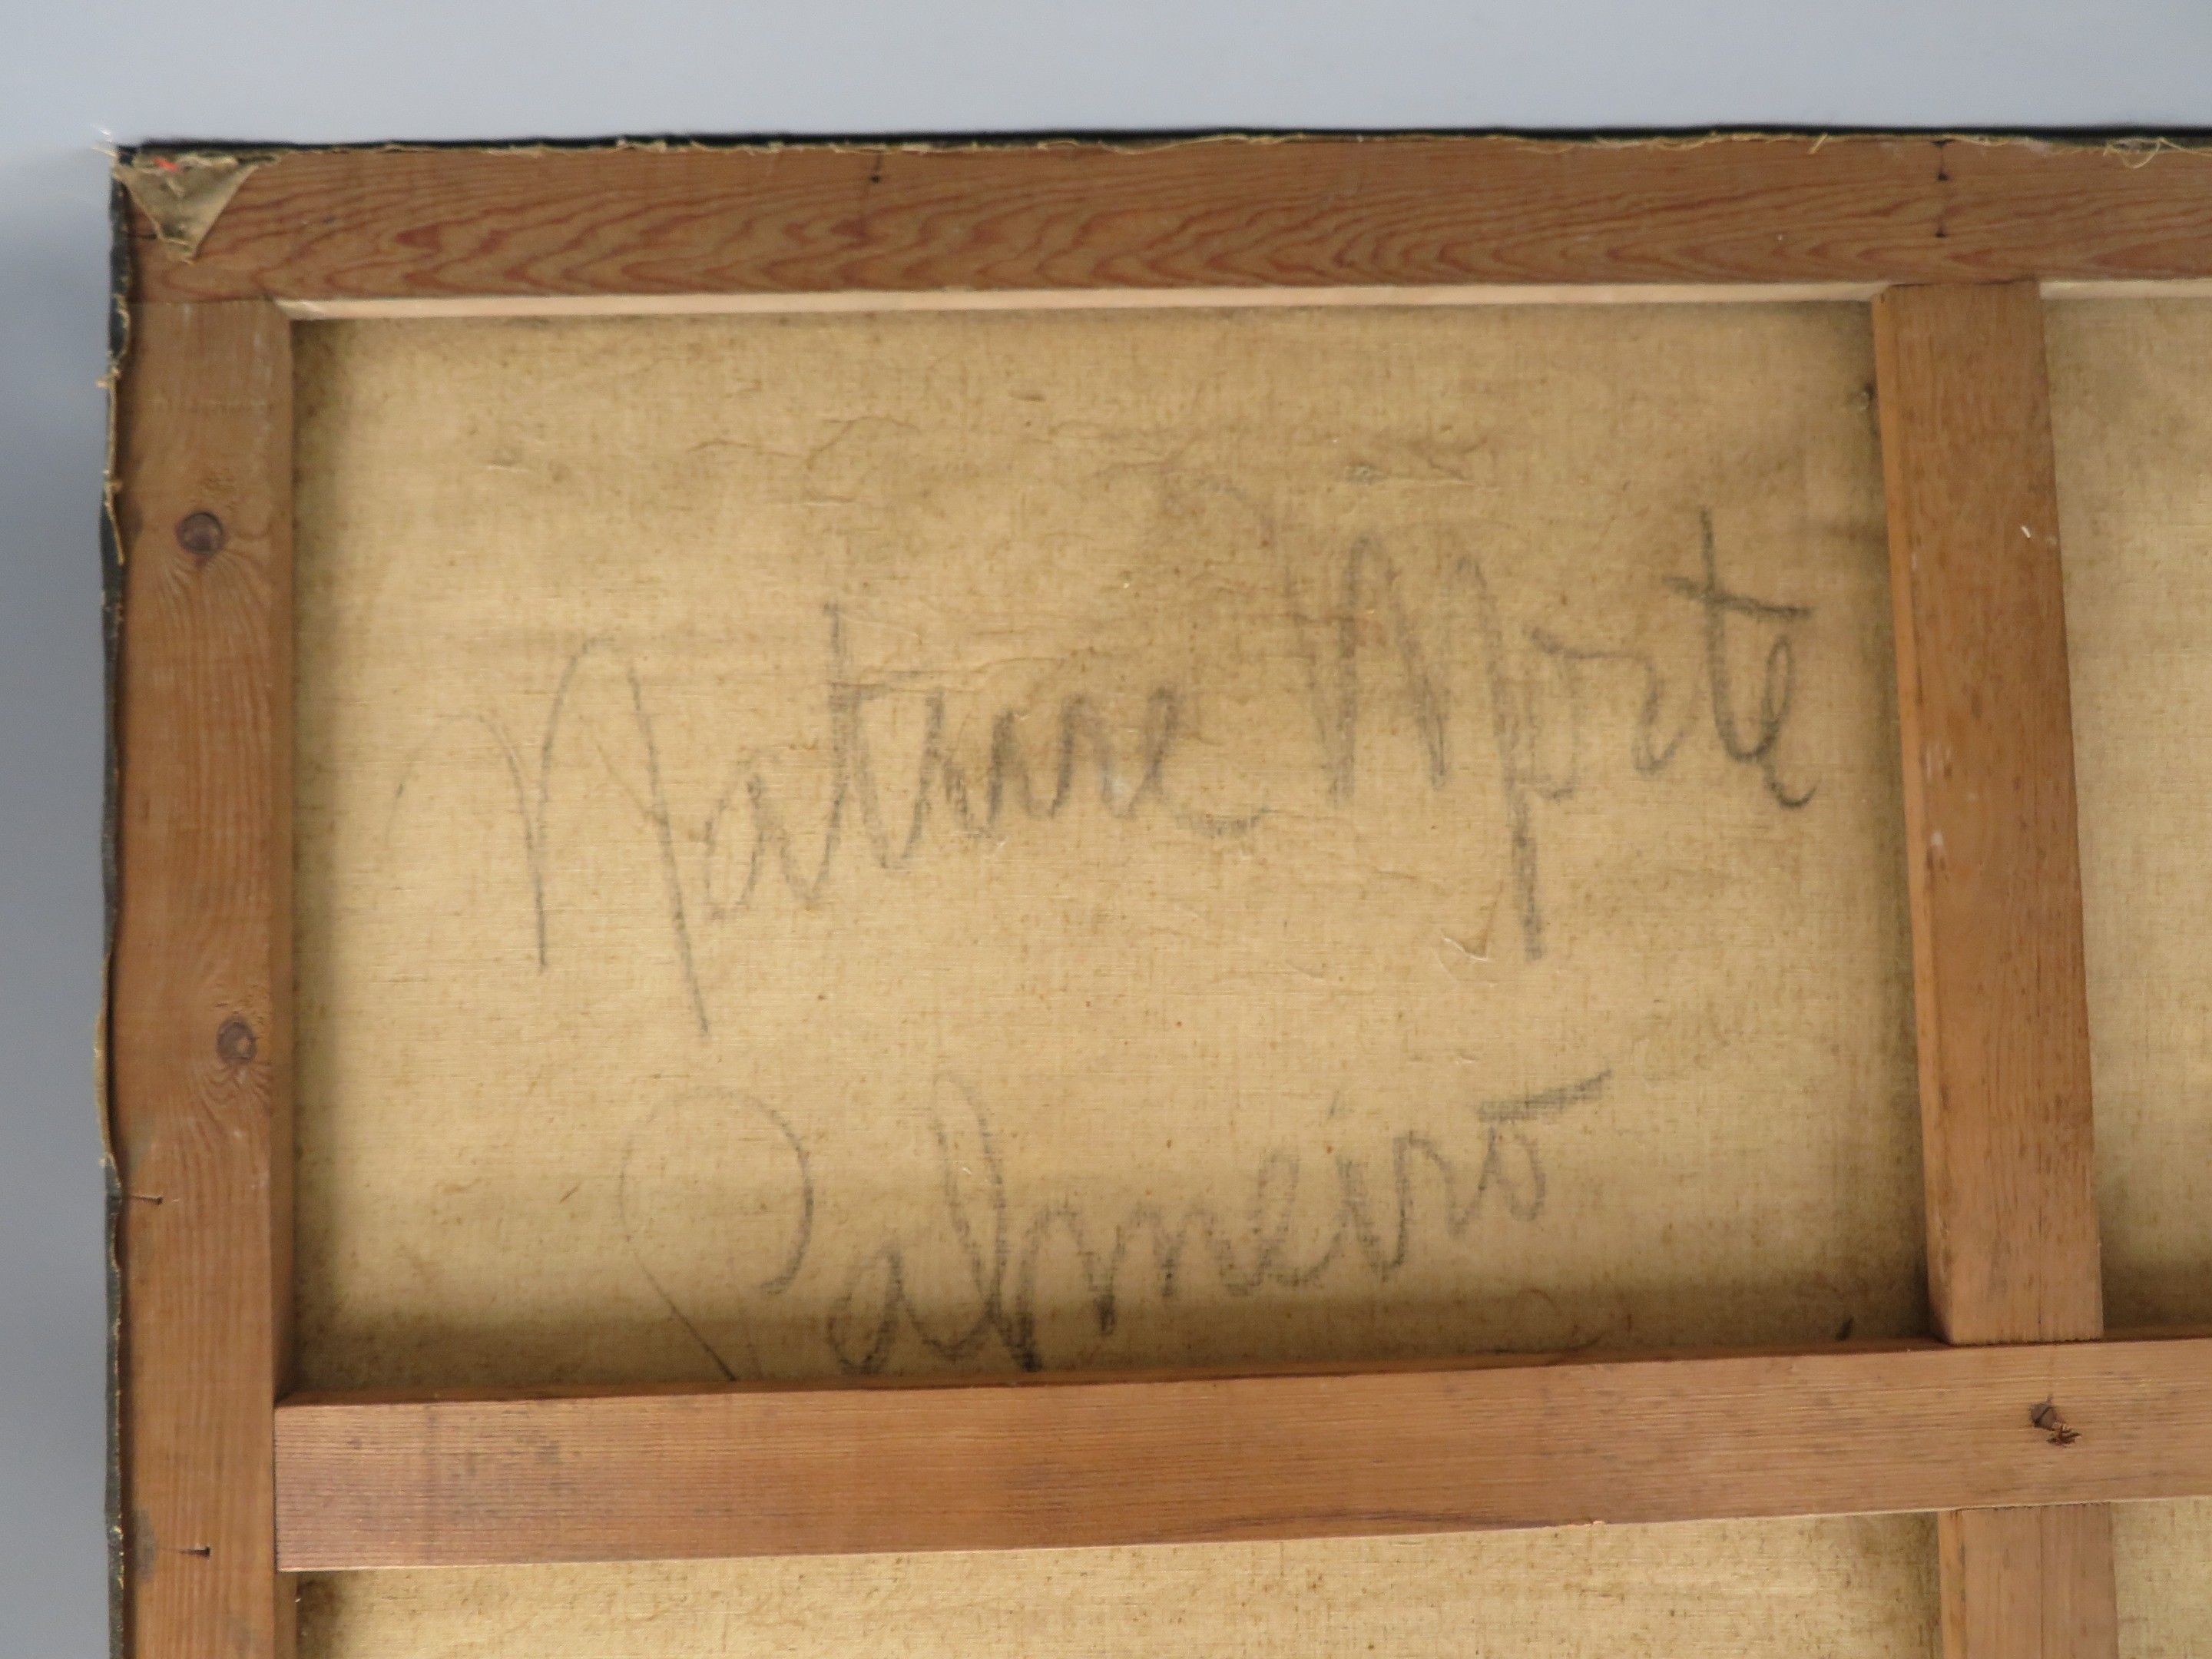 Nature Morte
Palmeiro